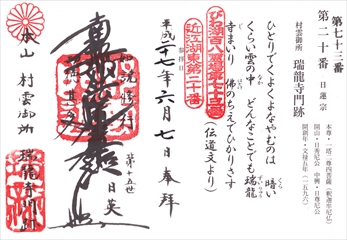 第七十三番
第二十番　日蓮宗
村雲御所　瑞龍寺門跡
本尊・一塔二尊四菩薩（釈迦牟尼仏）
開山・日秀尼公　中興・日尊尼公
開創年・文禄五年（一五九六）
ひとりでくよくよなやむのは　暗い
くらい雲の中　どんなことでも瑞龍
寺まいり　佛のちえでひかりさす
（伝道文より）
びわ湖百八霊場第七十三番
近江湖東第二十番
平成二十七年六月七日奉拝
如説修行
南無妙法蓮華経
第十五世
日英
本山　村雲御所　瑞龍寺門跡